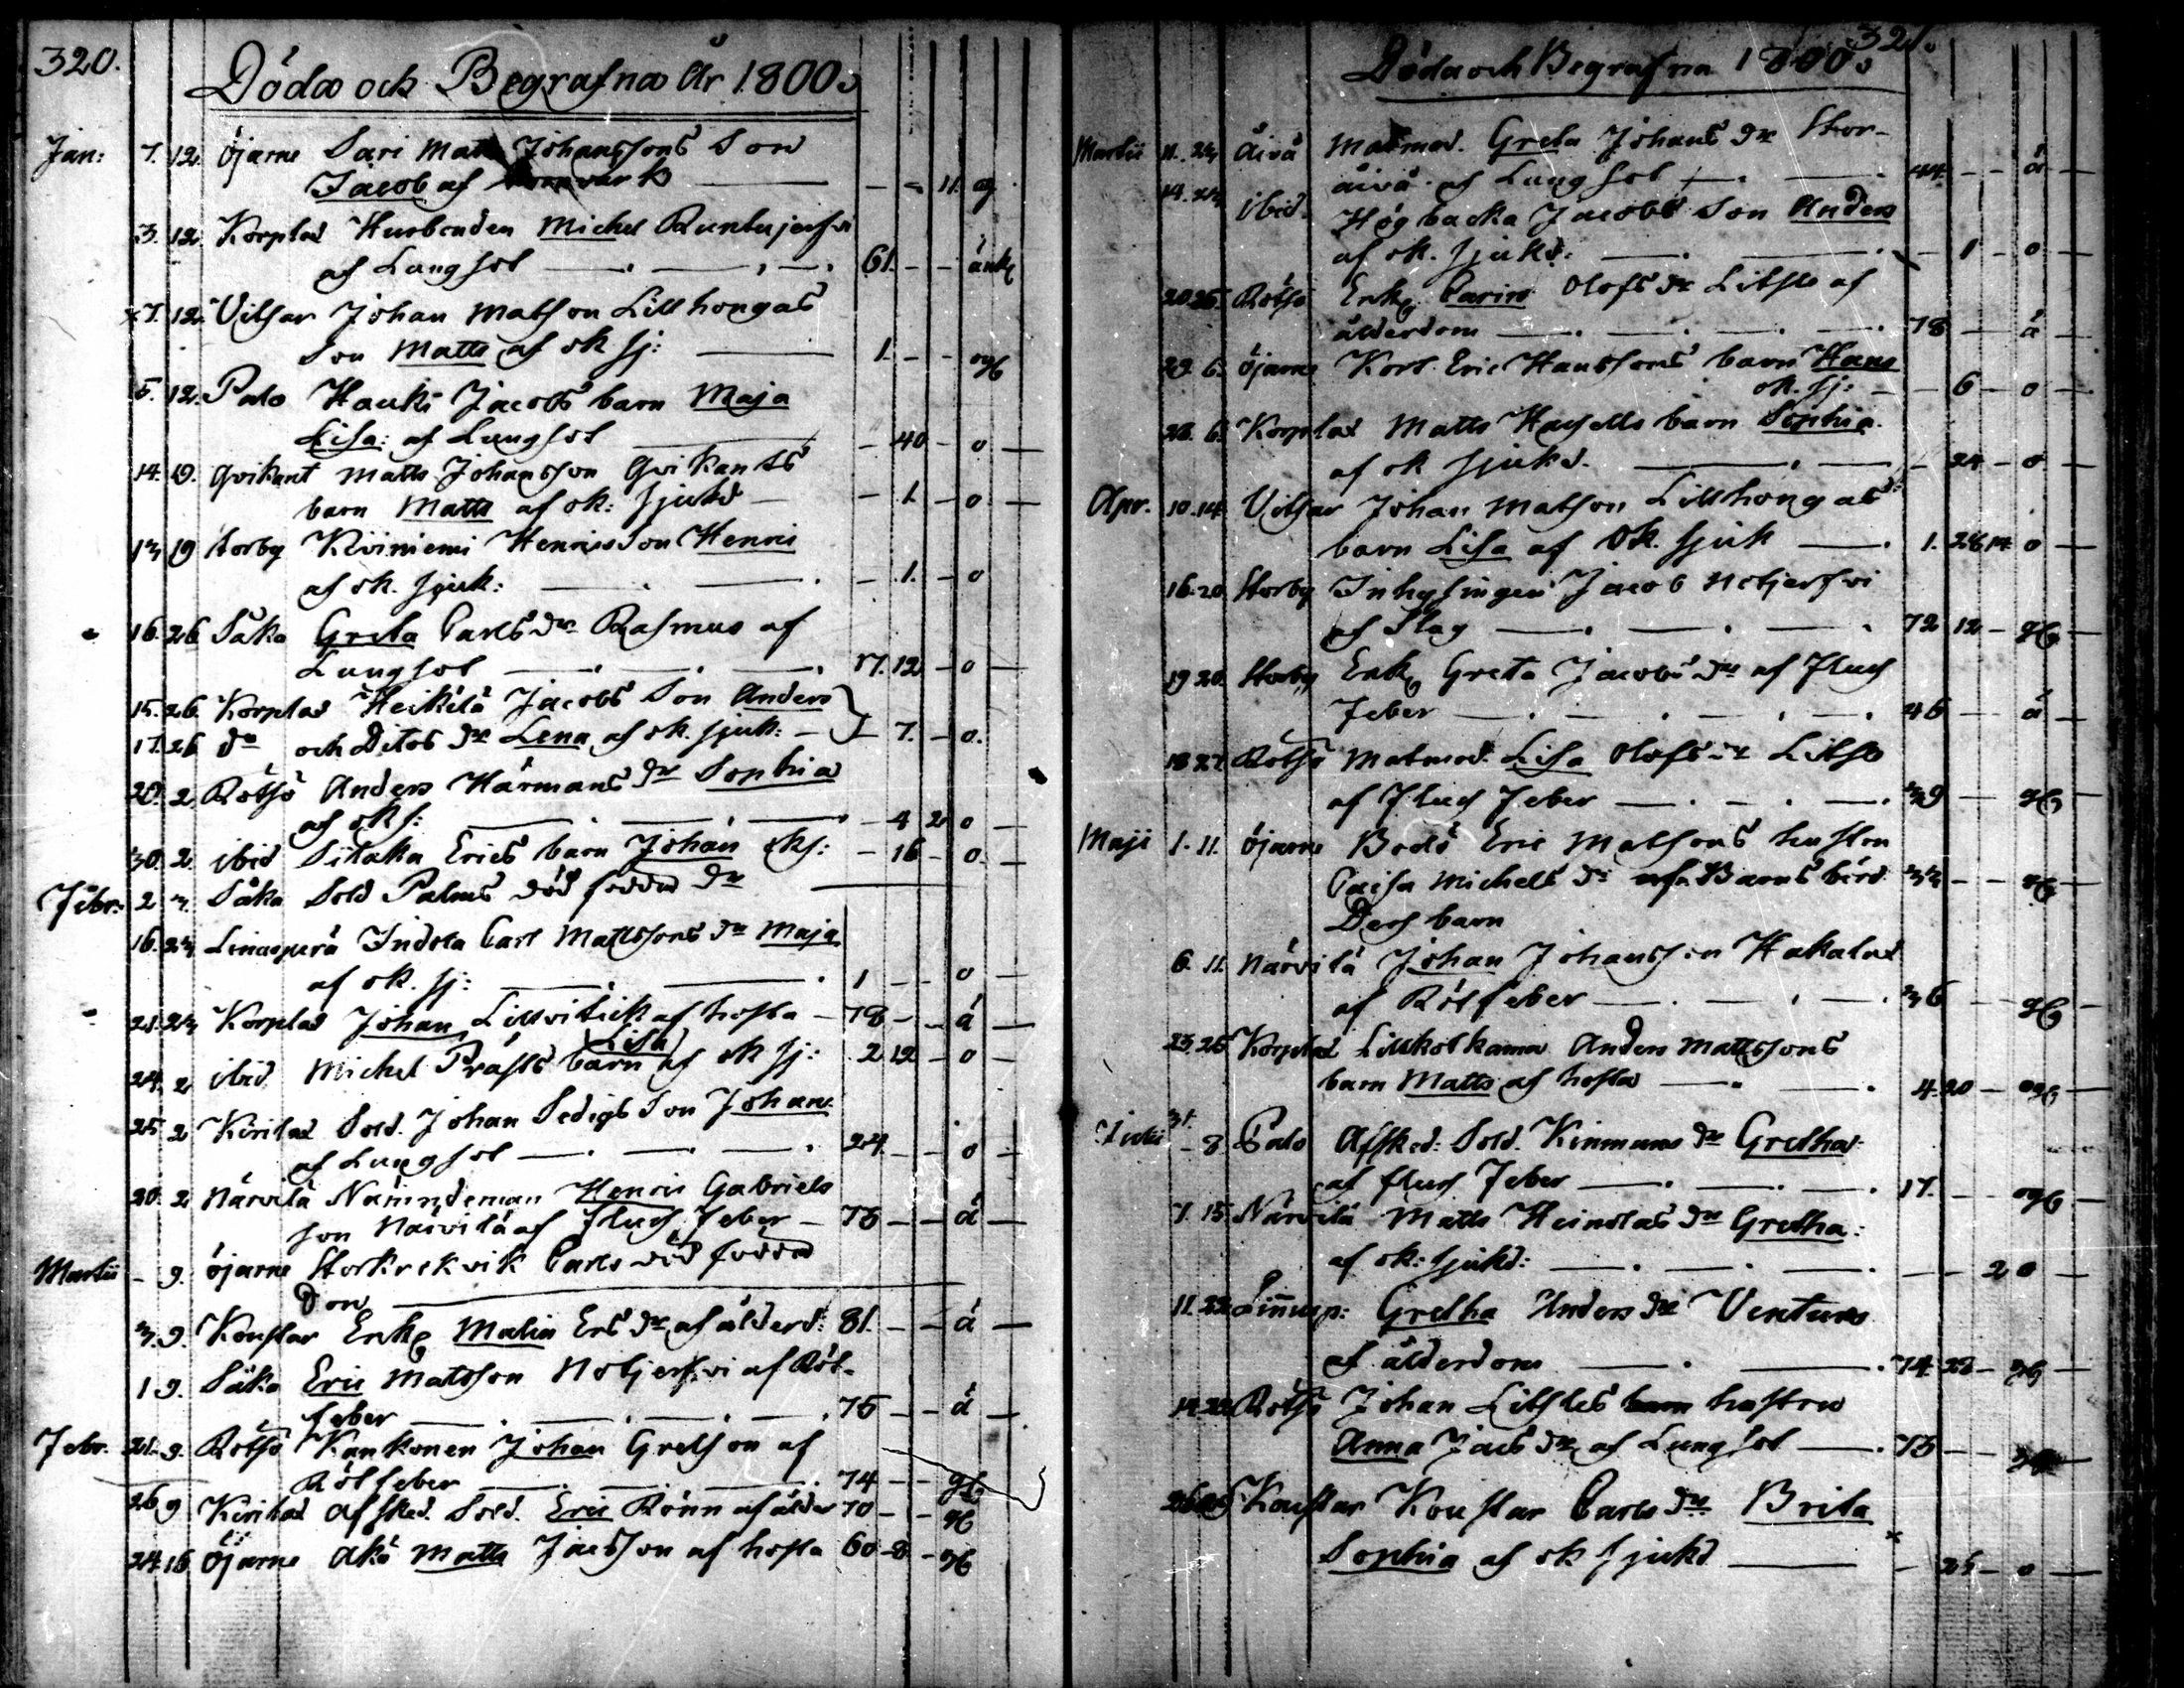 320.
Döda och Begrafna År 1800.
Jan: 7. 12. Öjarne Sari Matts Johanssons Son
Jacob af - - 11. og
3. 12. Korplax Husbonden Michel
af Lungsot 61. - - änkl
7. 12. Vitsar Johan Matsson Lillhongas
Son Matts af ok sj: 1. - - og
5. 12. Palo Hauki Jacobs barn Maja
Lisa: af Lungsot - 40 - o -
14. 19. Qvikant Matts Johansson Qvikants
barn Matts af ok: sjukd - - 1. - o -
19 Storby Kiviniemi Henrics Son Henric
af ok. sjuk: - 1. - o
16. 26 Såka Greta Carls dr Rasmus af
Lungsot 17. 12 - o -
15. 26. Korplax Heikilä Jacobs Son Anders
17. 26 do och Ditos dr Lena af ok. sjuk: - 7. - o.
20. 2 Rötsö Anders Härmans dr Sophia
af ok s: - 4 2 o -
30. 2. ibid Sitaka Erics barn Johan ok s: - 16 - o. -
Febr: 2 Såka Sold Palms död födda dr
16. Linusperä Indola Carl Mattssons dr Maja
af ok. sj: 1 - - o -
21. Korplax Johan Lillvitick af hosta - 78 - - á -
Lisa
24. 2 ibid Michel Prästs barn af ok sj: 2 12 - o -
25 2 Kirilax Sold. Johan Sedigs Son Johan
af Lungsot 24. - - o -
20. 2 Närvilä Nämndeman Henric Gabriels
son Närvilä af Fluss Feber - 75 - - á -
Martii - 9. Öjarne Storkrekvik Carls död födda
Son
9. Konstar Enk Malin Ers dr af ålderd: 81. - - á -
1 9. Såka Eric Matsson Nobjersvi af Röt-
feber 75 - - á -
Febr. 21. 9. Rötsö Kankonen Johan Gretsson af
Rötfeber 74 - - gt
26 9 Kirilax Afsked. Sold. Eric Rönn af ålder 70 - - gt
24. 16 Öjarne Akö Matts Jacsson af hosta 60 - 8 - gt
321.
Döda och Begrafna 1800.
Martii 11. Åivå Matmod. Greta Johans dr Stor-
åivå af Lungsot 44. - - á -
14. ibid. Högbacka Jacobs Son Anders
af ok. sjukd: - 1 - o -
20 25. Rötsö Enk Carin Olofs dr Litsle af
ålderdom 78 - - á -
29. 6. Öjarne Korl. Eric Hanssons barn Hans
ok. sj: - - 6 - o -
28. 6. Korplax Matts Hasells barn Sophia.
af ok sjukd. - 24 - o -
Apr. 10. 14. Vitsar Johan Matsson Lillhongas
barn Lisa af ok. sjuk 1. 28 14 o -
16. 20. Storby Inhysingen Jacob Nobjersvi
af Slag 72 12 - gt -
19 20. Storby Enk Greta Jacobs dr af Fluss
Feber 46 - á -
18 27. Rötsö Matmod. Lisa Olofs dr Litsle
af Fluss Feber 39 - - gt -
Maji 1. 11. Öjarne Bodö Eric Matsons hustru
Caisa Michels dr af Barns börd 33 - - gt -
Dess barn
6. 11. Närvilä Johan Johansson Hakala
af Rötfeber 36 - - gt -
23. 25 Korplax Lillkotkama Anders Mattssons
barn Matts af hosta 4. 20 - ogt -
31.
- 8 Palo Afsked: Sold. Kinmans dr Gretha
af fluss Feber 17. - - ogt -
7. 15. Närvilä Matts Heinolas dr Gretha:
af ok: sjukd: - - 2 o -
11. 22. Linusp: Gretha Anders dr Venturs
af ålderdom 74. 28 - gt -
14. 22. Rötsö Johan Litsles hustru
Anna Jacs dr af Lungsot 73 - -
Konstar Konstar Carls dr Brita
Sophia af ok sjukd - 26 - o -